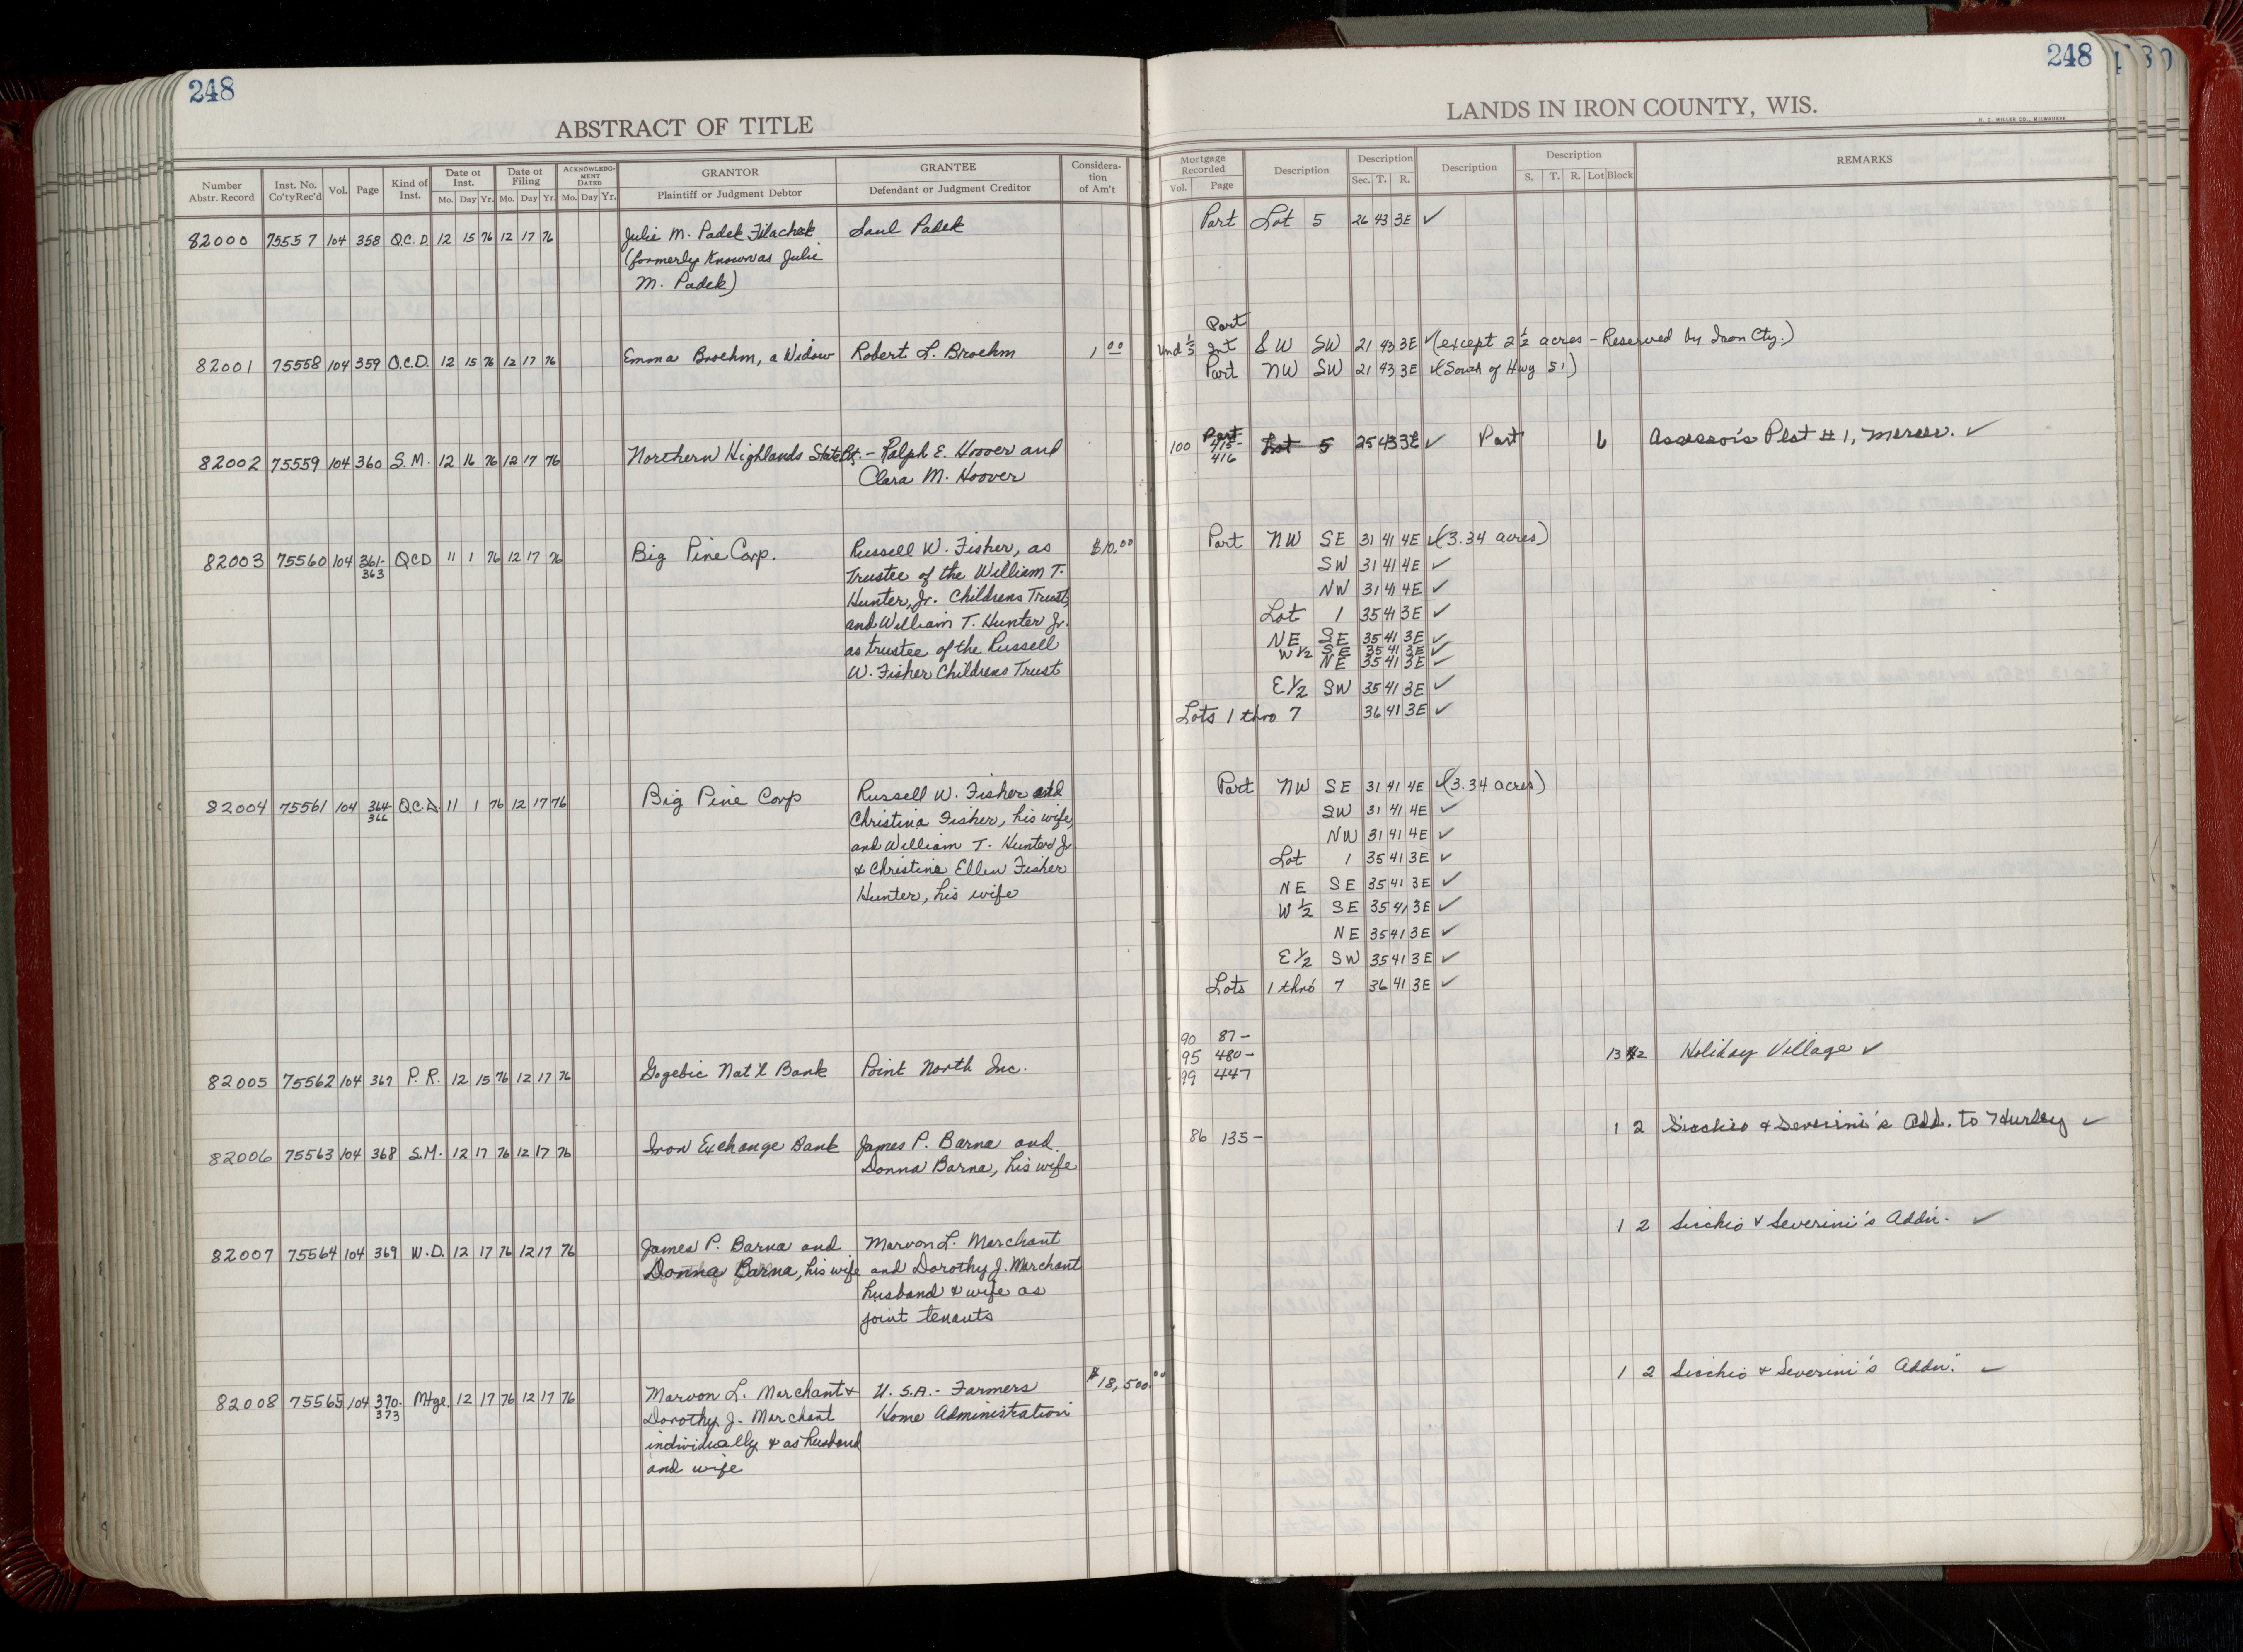 248
ABSTRACT OF TITLE
Number Abstr. Record Inst. No. Co'ty Rec'd Vol. Page Kind of Inst. Date of Inst. Mo. Day Yr. Date of Filing Mo. Day Yr. ACKNOWLEDGMENT DATED Mo. Day Yr. GRANTOR Plaintiff or Judgment Debtor GRANTEE Defendant or Judgment Creditor Consideration of Am't
248
LANDS IN IRON COUNTY, WIS.
H. C. MILLER CO., MILWAUKEE
Mortgage Recorded Vol. Page Description Description Sec. T. R. Description Description S. T. R. Lot Block REMARKS
82000 75557 104 358 Q.C.D. 12 15 76 12 17 76 Julie M. Padek Filachek Saul Padek Part Lot 5 26 43 3E ✓
(formerly Known as Julie
M. Padek)
Part
82001 75558 104 359 Q.C.D. 12 15 76 12 17 76 Emma Broehm, a Widow Robert L. Broehm 1 00 Und 1/3 Int SW SW 21 43 3E ✓ (except 2 1/2 acres - Reserved by Iron Cty.)
Part NW SW 21 43 3E ✓ (South of Hwy 51)
82002 75559 104 360 S.M. 12 16 76 12 17 76 Northern Highlands State Bk. - Ralph E. Hoover and 100 415- Part Lot 5 25 43 3E ✓ Part 6 Assessor's Plat #1, Mercer. ✓
Clara M. Hoover 416
82003 75560 104 361- QCD 11 1 76 12 17 76 Big Pine Corp. Russell W. Fisher, as $10.00 Part NW SE 31 41 4E ✓ (3.34 acres)
363 Trustee of the William T. SW 31 41 4E ✓
Hunter, Jr. Childrens Trust, NW 31 41 4E ✓
and William T. Hunter Jr. Lot 1 35 41 3E ✓
as trustee of the Russell NE SE 35 41 3E ✓
W 1/2 SE 35 41 3E ✓
W. Fisher Childrens Trust NE 35 41 3E ✓
E 1/2 SW 35 41 3E ✓
Lots 1 thro 7 36 41 3E ✓
82004 75561 104 364- Q.C.D. 11 1 76 12 17 76 Big Pine Corp Russell W. Fisher and Part NW SE 31 41 4E ✓ (3.34 acres)
366 Christina Fisher, his wife, SW 31 41 4E ✓
and William T. Hunter Jr NW 31 41 4E ✓
& Christine Ellen Fisher Lot 1 35 41 3E ✓
Hunter, his wife NE SE 35 41 3E ✓
W 1/2 SE 35 41 3E ✓
NE 35 41 3E ✓
E 1/2 SW 35 41 3E ✓
Lots 1 thro 7 36 41 3E ✓
90 87-
95 480- 13 2 Holiday Village ✓
82005 75562 104 367 P.R. 12 15 76 12 17 76 Gogebic Nat'l Bank Point North Inc. 99 447
82006 75563 104 368 S.M. 12 17 76 12 17 76 Iron Exchange Bank James P. Barna and 86 135- 1 2 Sicchio & Severini's Add. to Hurley ✓
Donna Barna, his wife
82007 75564 104 369 W.D. 12 17 76 12 17 76 James P. Barna and Marvon L. Marchant 1 2 Sicchio & Severini's Addn. ✓
Donna Barna, his wife and Dorothy J. Marchant
husband & wife as
joint tenants
82008 75565 104 370- Mtge. 12 17 76 12 17 76 Marvon L. Marchant & U.S.A. - Farmers $18,500.00 1 2 Sicchio & Severini's Addn. ✓
373 Dorothy J. Marchant Home Administration
individually & as husband
and wife